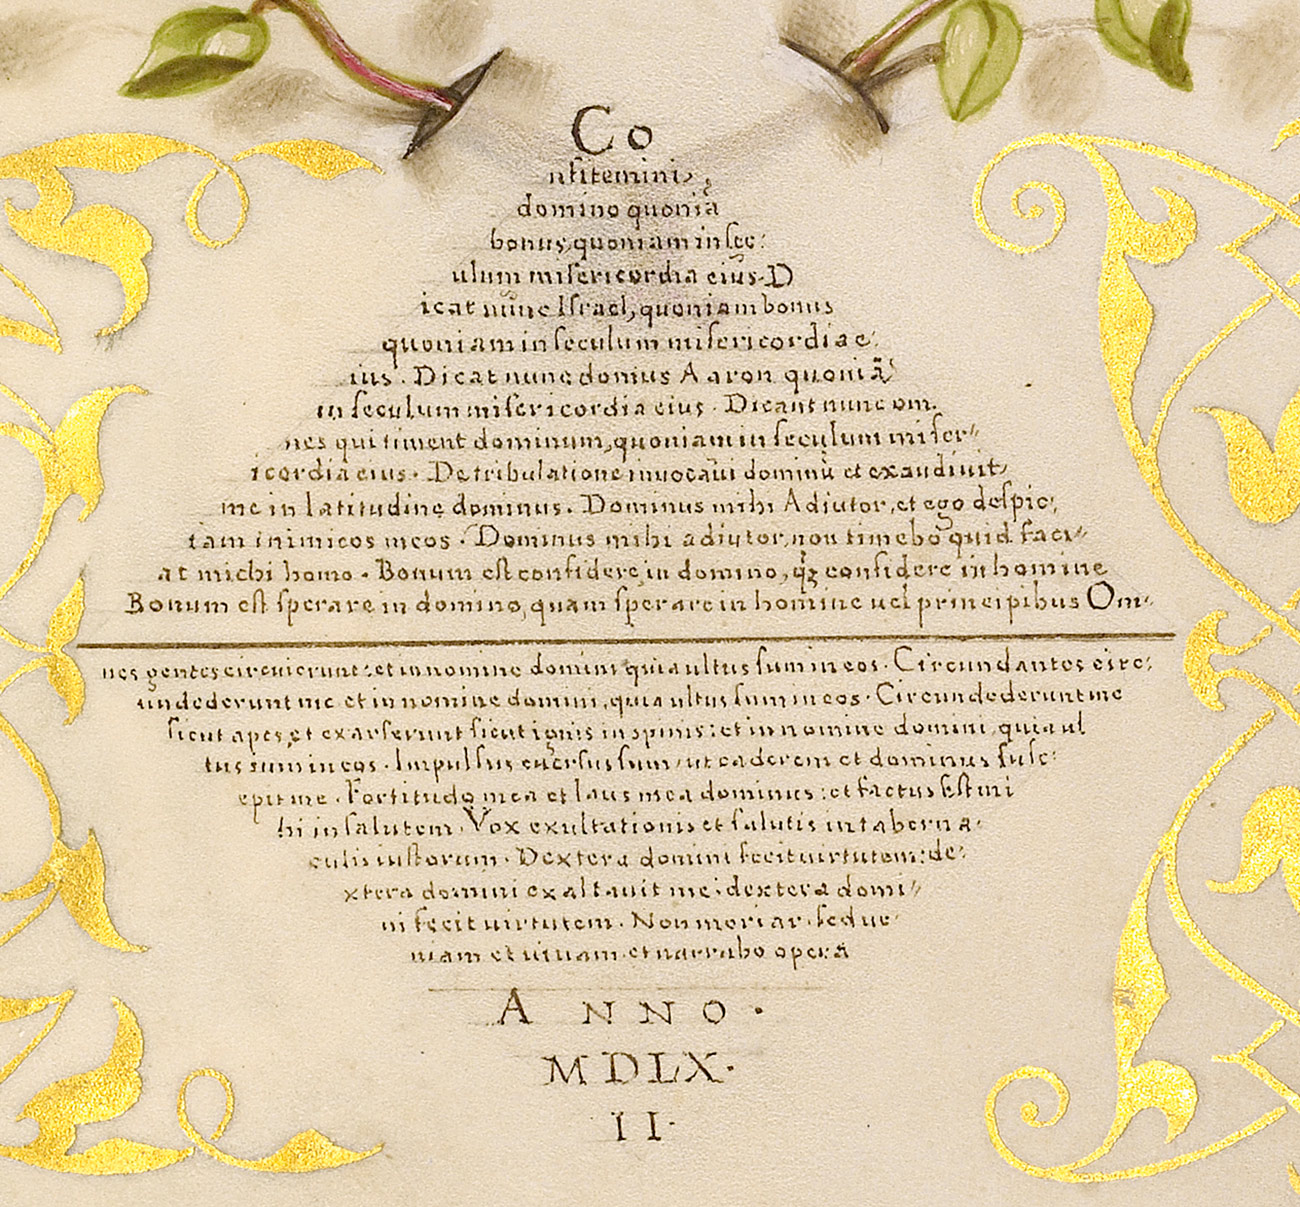 Co
nfitemini,
domino quoniã
bonus, quoniam in sęc:
ulum misericordia eius. D
icat nunc Israel, quoniam bonus
quoniam in seculum misericordia e:
ius. Dicat nunc domus Aaron quoniã
in seculum misericordia eius. Dicant nunc om.
nes qui timent dominum, quoniam in seculum miser//
icordia eius. De tribulatione inuocaui dominũ et exaudiuit
me in latitudine dominus. Dominus mihi Adiutor, et ego despic:
iam inimicos meos. Dominus mihi adiutor, non timebo quid faci//
at michi homo. Bonum est confidere in domino, q̃ʒ confidere in homine
Bonum est sperare in domino, quam sperare in homine uel principibus Om:
nes gentes circuierunt: et in nomine domini quia ultus sum in eos. Circundantes circ:
undederunt me et in nomine domini, quia ultus sum in eos. Circundederunt me
sicut apes, et exarserunt sicut ignis in spinis: et in nomine domini, quia ul
tus sum in eos. Impulsus euersus sum, ut caderem et dominus susc:
epit me. Fortitudo mea et laus mea dominus: et factus Est mi
hi in salutem. Vox exultationis et salutis in taberna:
culis iustorum. Dextera domini fecit uirtutem: de:
xtera domini exaltauit me: dextera domi//
ni fecit uirtutem. Non moriar. sed ue:
uiam et uiuam. et narrabo opera
ANNO.
MDLX.
II.